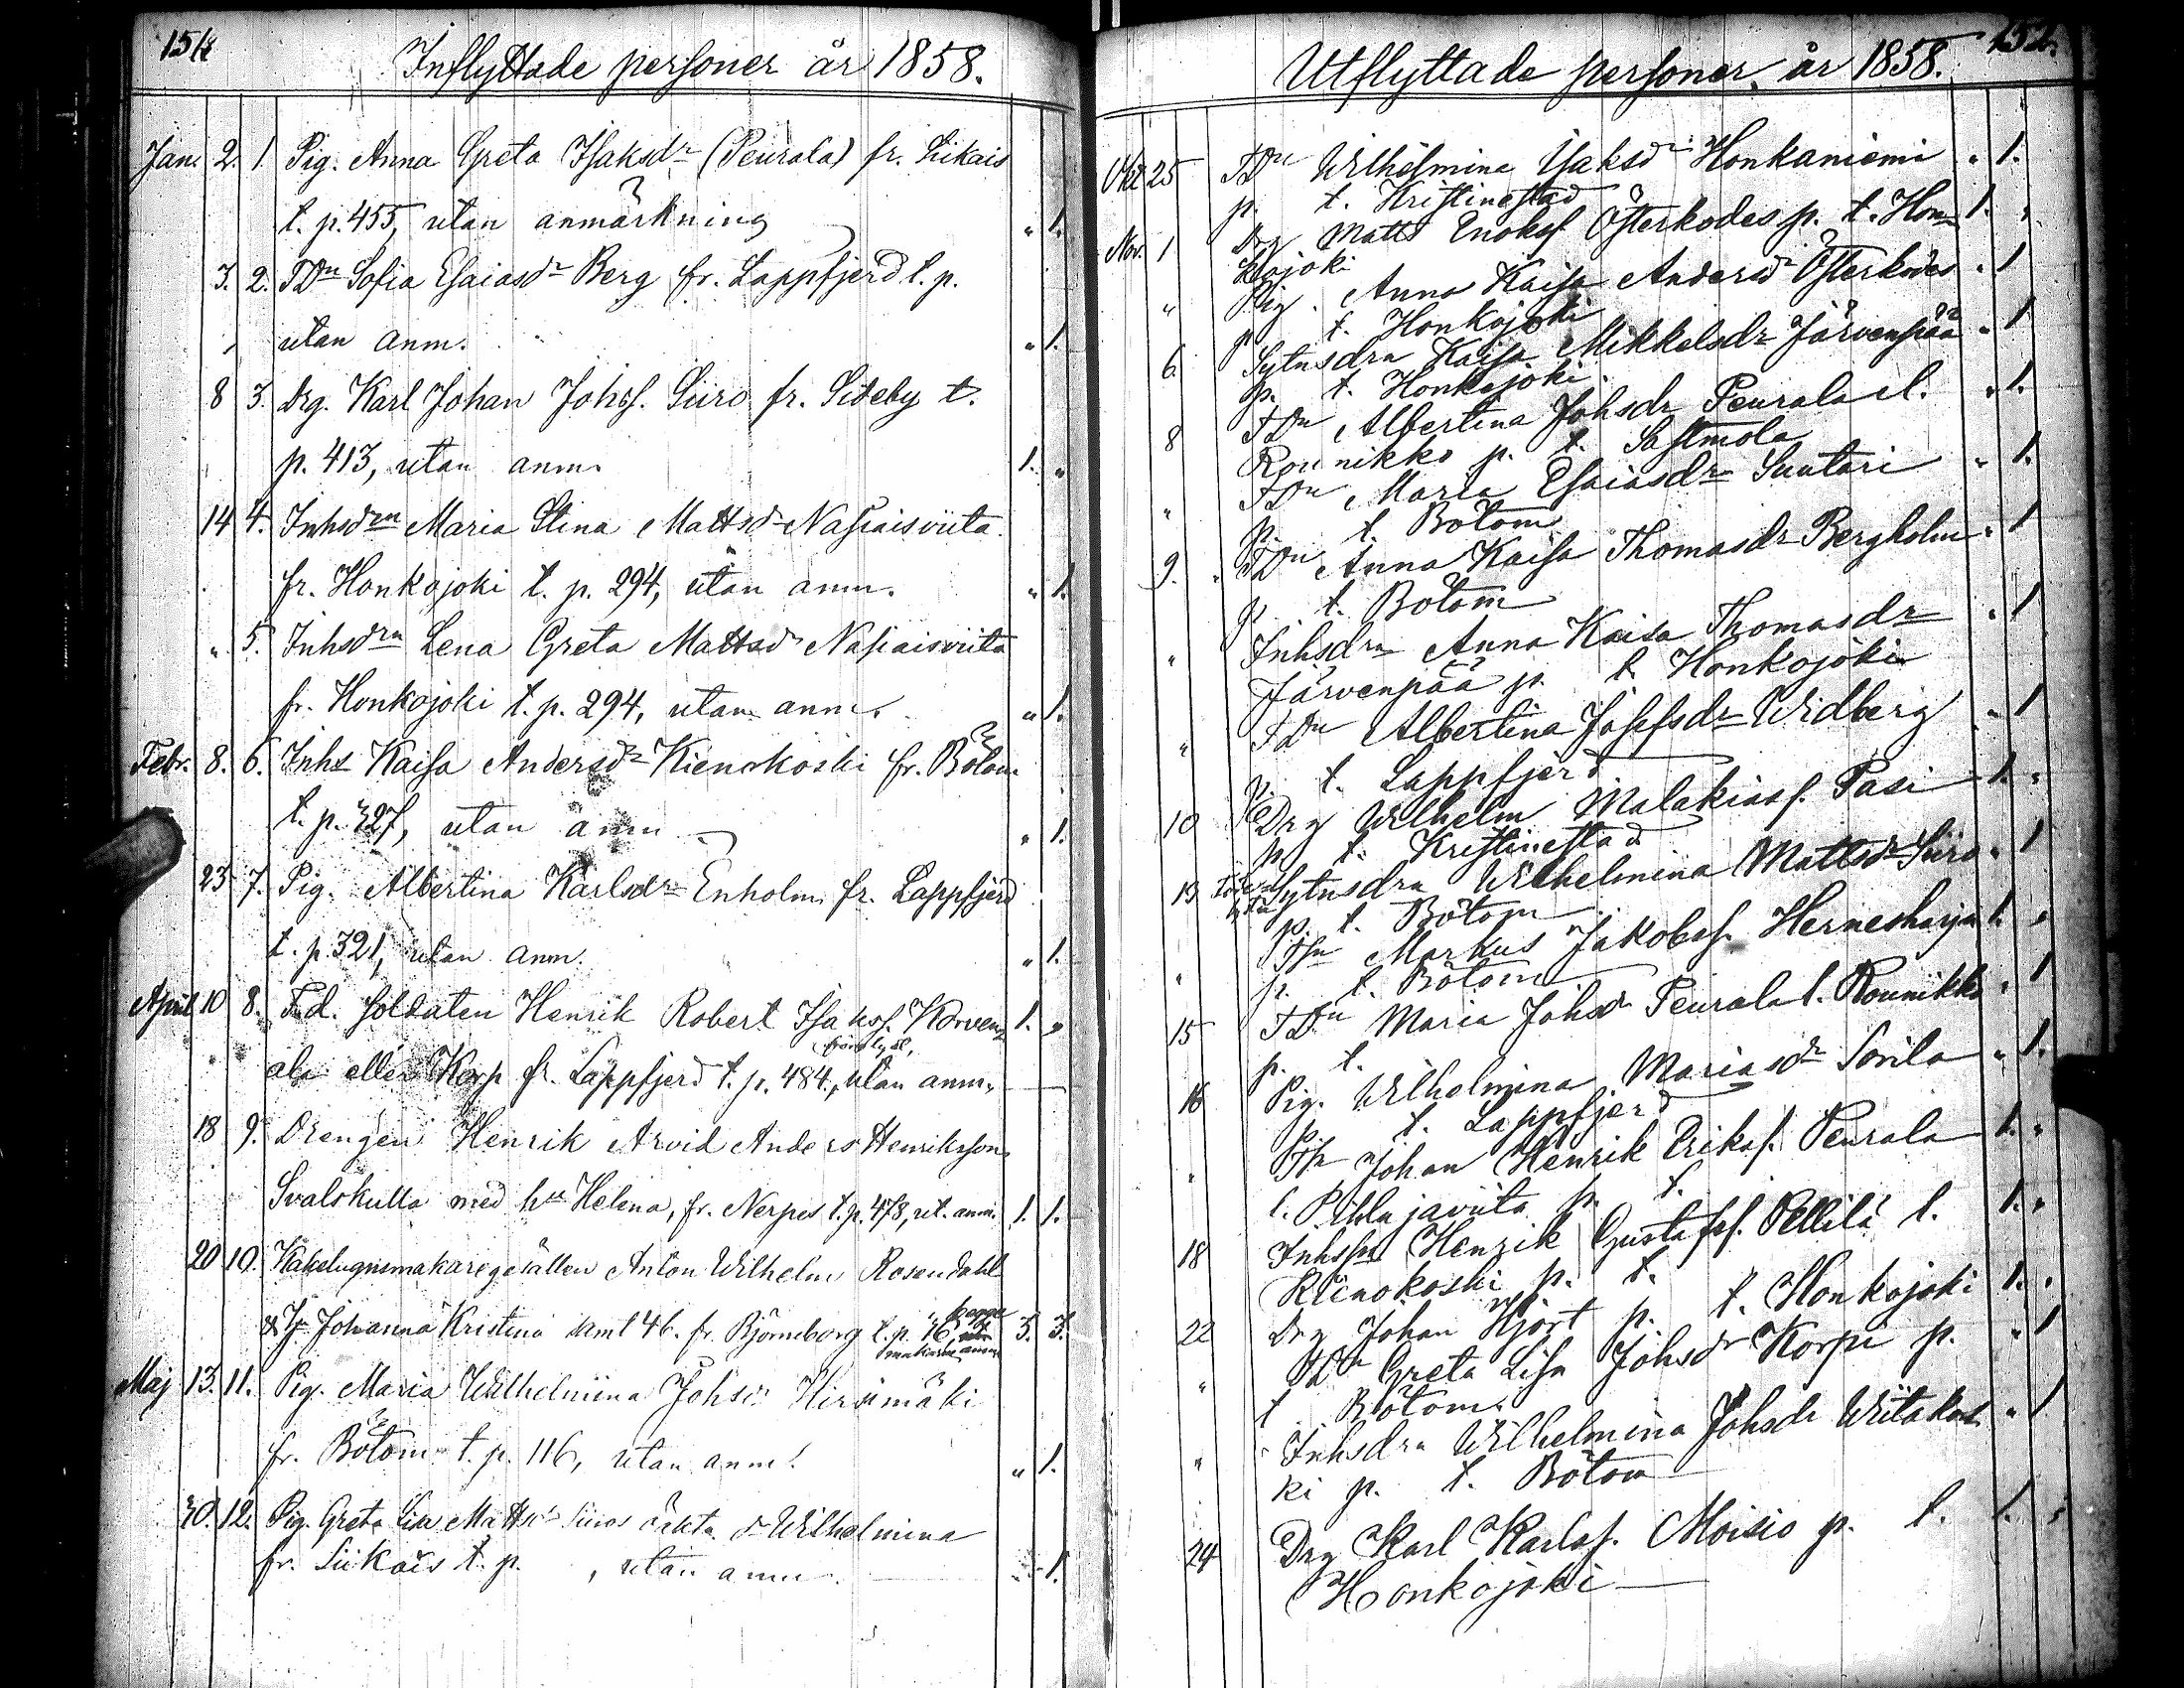 151
Inflyttade personer år 1858.
Jan. 2. 1. Pig. Anna Greta Isaksdr (Peurala) fr. Siikais
t. p. 455, utan anmärkning " 1.
3. 2. TDn Sofia Esaiasdr Berg fr. Lappfjerd t. p.
utan anm. " 1.
8 3. Drg. Karl Johan Johss. Siiro fr. Sideby t.
p. 413, utan anm. 1. "
14 4. Inhsdrn Maria Stina Mattsdr Nasiaisviita
fr. Honkojoki t. p. 294, utan anm. " 1.
" 5. Inhsdrn Lena Greta Mattsdr Nasiaisviita
fr. Honkojoki t. p. 294, utan anm. " 1.
Febr. 8. 6. Inhs Kaisa Andersdr Kienokoski fr. Bötom
t. p. 327, utan anm " 1.
23 7. Pig. Albertina Karlsdr Enholm fr. Lappfjerd
t. p. 321, utan anm. " 1.
April 10 8. F.d. soldaten Henrik Robert Isakss. Korven 1. "
ala eller Korp fr. Lappfjerd t. p. 484, utan anm.
18 9. Drengen Henrik Arvid Anders Henriksson
Svalskulla med hu Helena, fr. Nerpes t. p. 478, ut. anm. 1. 1.
20 10. Kakelugnsmakaregesällen Anton Wilhelm Rosendahl
Johanna Kristina samt 4 b. fr. Björneborg t. p. 16, 3. 3.
Maj 13. 11. Pig. Maria Wilhelmina Johsdr Hirsimäki
fr. Bötom t. p. 116, utan anm. " 1.
30. 12. Pig. Greta Lisa Mattsdr Siiros oäkta dr Wilhelmina
fr. Siikais t. p. , utan anm. " 1.
152.
Utflyttade personer år 1858.
Okt 25 TDn Wilhelmina Isaksdr Honkaniemi " 1.
p. t. Kristinestad
Nov. 1 Drg Matts Enokss. Österkodes p. t. Hon 1. "
kojoki
" Pig. Anna Kaisa Andersdr Österkodes " 1
p t. Honkojoki
6. Sytnsdrn Kaisa Mikkelsdr Järvenpää " 1
p. t. Honkojoki.
8 TDn Albertina Johsdr Peurala el. " 1.
Rounikko p. t. Sastmola
" TDn Maria Esaiasdr Suutari " 1.
p. t. Bötom
9. TDn Anna Kaisa Thomasdr Bergholm " 1
p t. Bötom
" Inhsdrn Anna Kaisa Thomasdr " 1
Järvenpää p. t. Honkojoki
" TDn Albertina Josefsdr Widberg " 1
p. t. Lappfjerd
10 Drg Wilhelm Malakiass. Pasi 1. "
p. t. Kristinestad
13 Sytnsdrn Wilhelmina Mattsdr Siiro " 1
p. t. Bötom
" Markus Jakobss. Hernesharju 1. "
p. t. Bötom
15 TDn Maria Johsdr Peurala l. Rounikko " 1
p. t.
16 Pig. Wilhelmina Mariasdr Sorila " 1.
p. t. Lappfjerd
" Johan Henrik Erikss. Peurala 1. "
l. Pihlajaviita p. t.
18 Inhsn Henrik Gustafss. Pellilä l. 1. "
Kienokoski p. t.
22 Drg Johan Hjort p. t. Honkojoki 1. "
" TDn Greta Lisa Johsdr Korpi p. " 1
t Bötom.
" Inhsdrn Wilhelmina Johsdr Wiitakos " 1
ki p. t. Bötom
24 Drg Karl Karlss. Moisio p. t. 1. "
Honkojoki